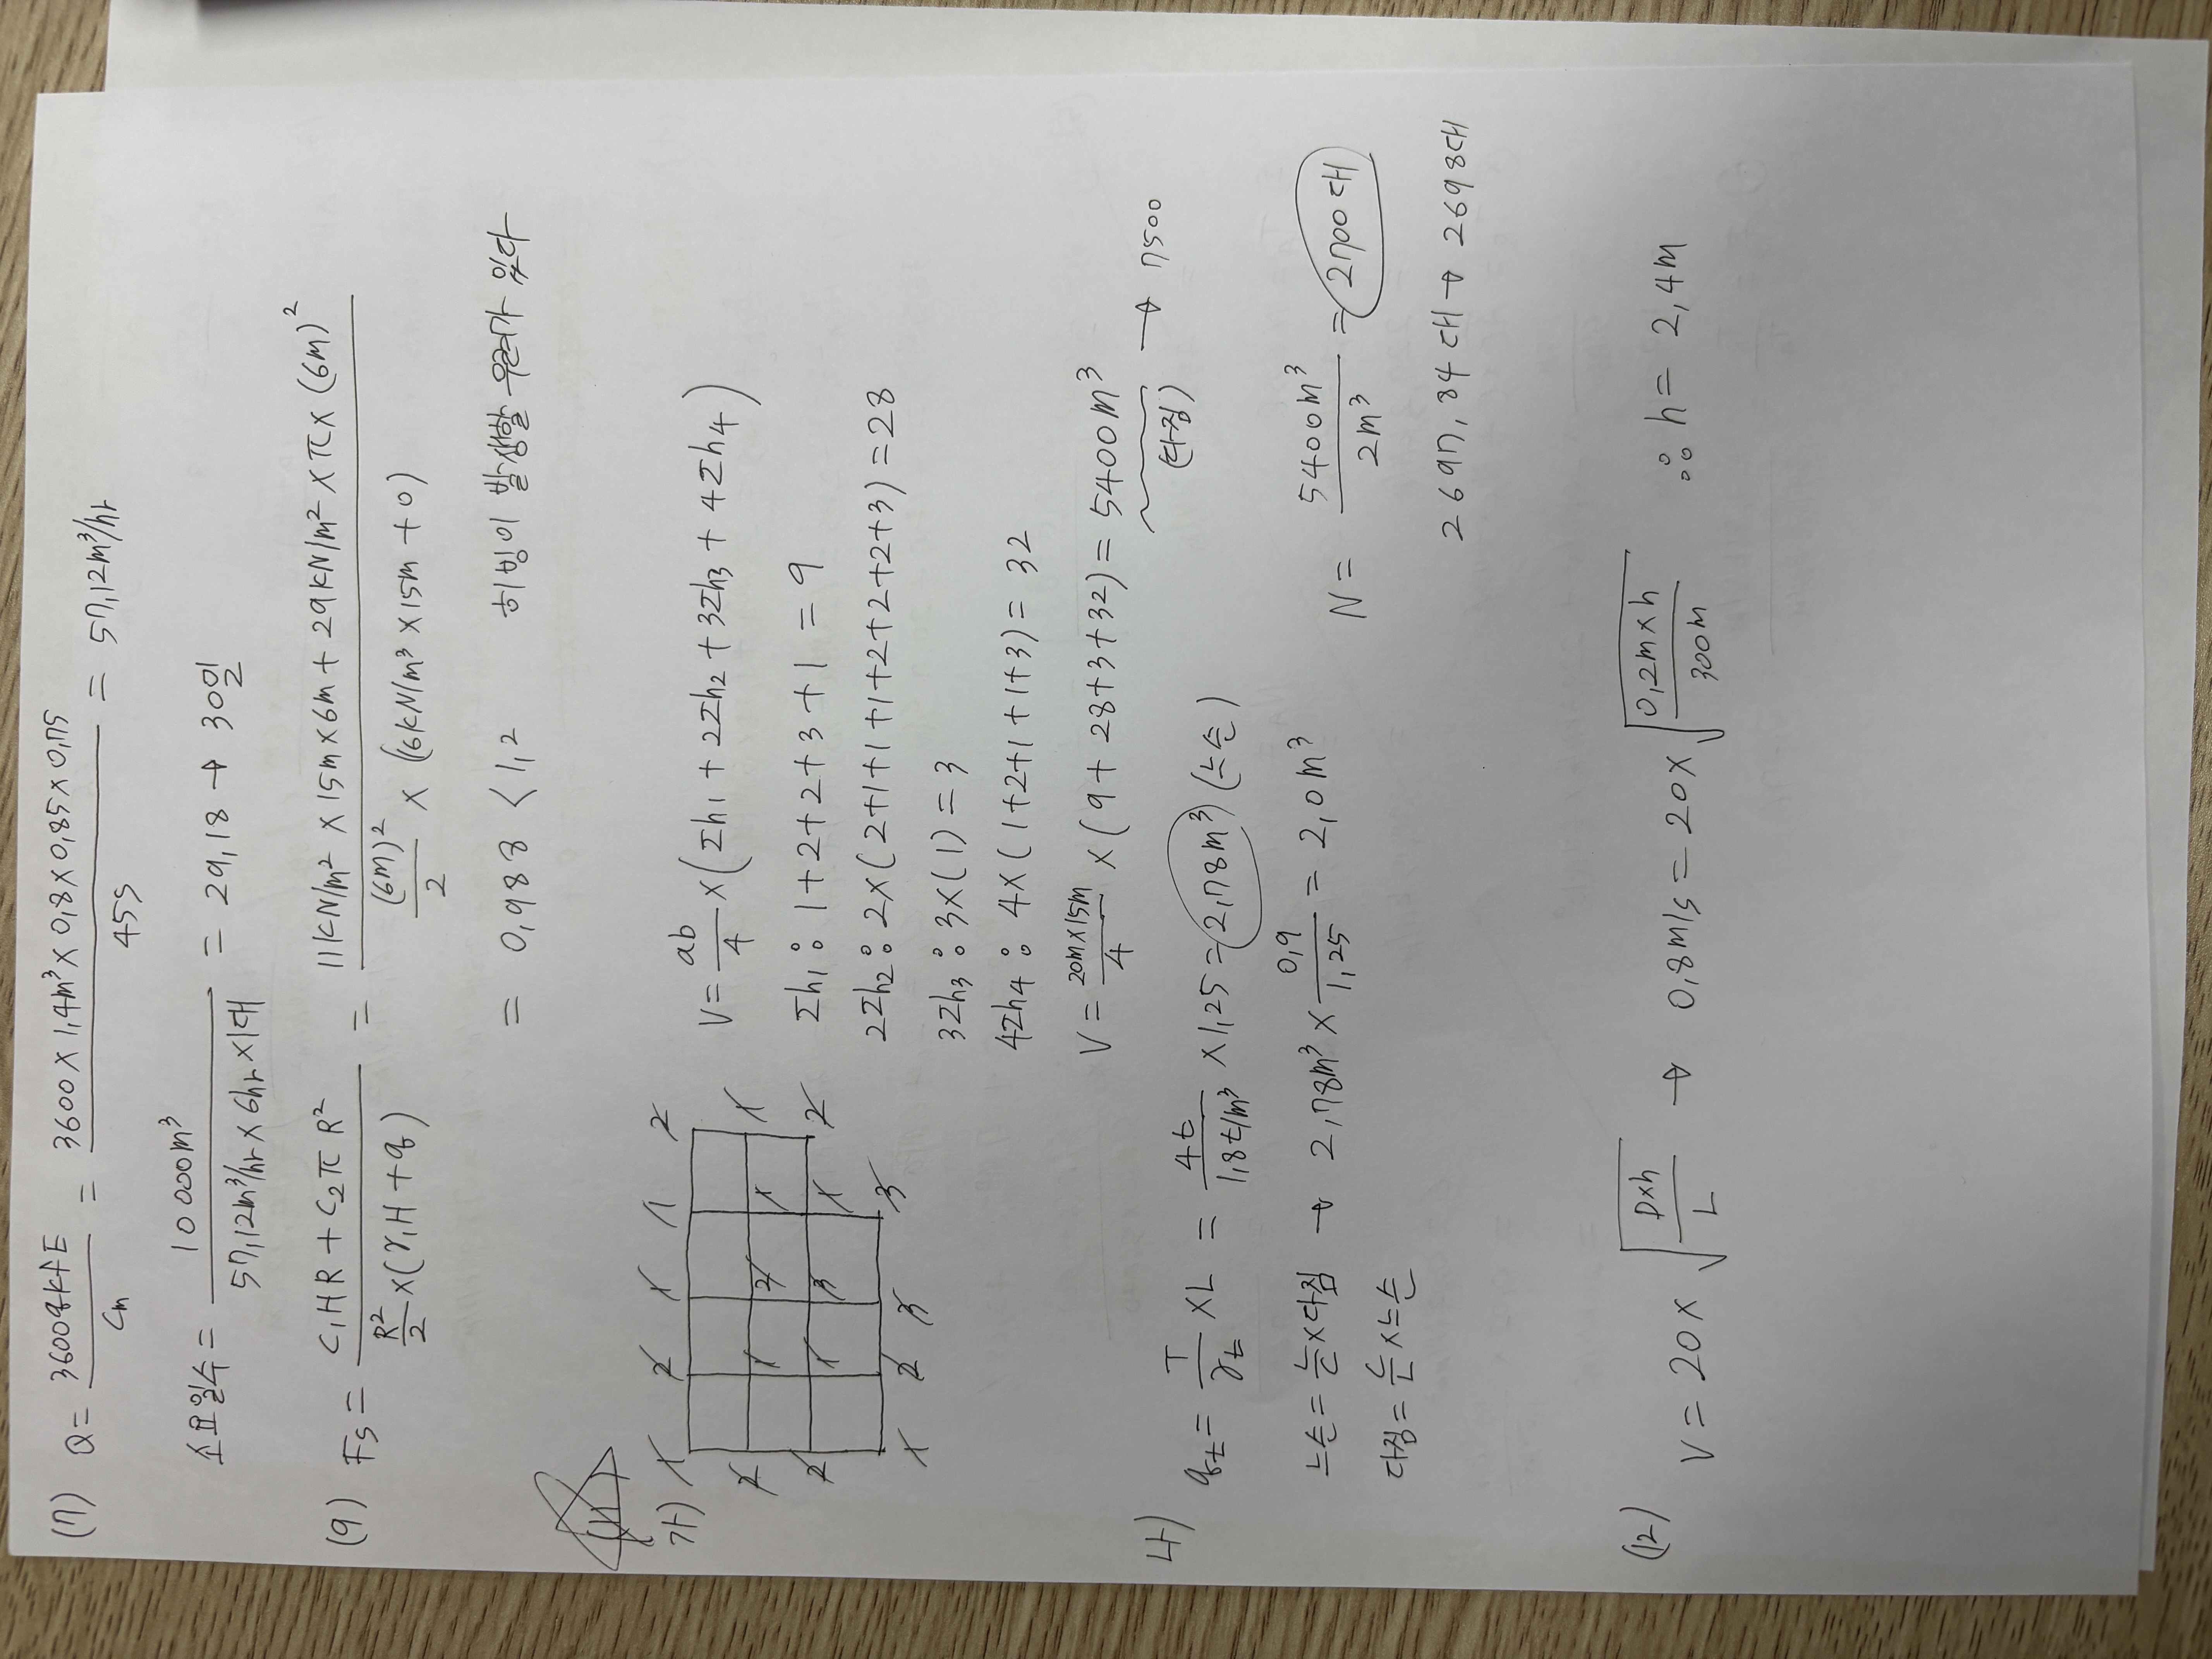 (7) Q = 3600qkfE / Cm = 3600 × 1,4m³ × 0,8 × 0,85 × 0,75 / 45s = 57,12m³/hr
소요일수 = 10000m³ / 57,12m³/hr × 6hr × 1대 = 29,18 → 30일
(9) Fs = C₁HR + C₂πR² / R²/2 × (γ₁H + q) = 11kN/m² × 15m × 6m + 29kN/m² × π × (6m)² / (6m)²/2 × (16kN/m³ × 15m + 0)
= 0,988 < 1,2 히빙이 발생할 우려가 있다
가)
1 2 1 1 2
2 1 2 1 1
2 1 3 1 2
1 2 3 3
V = ab/4 × (Σh₁ + 2Σh₂ + 3Σh₃ + 4Σh₄)
Σh₁ : 1+2+2+3+1 = 9
2Σh₂ : 2×(2+1+1+1+2+2+2+3) = 28
3Σh₃ : 3×(1) = 3
4Σh₄ : 4×(1+2+1+1+3) = 32
V = 20m×15m/4 × (9+28+3+32) = 5400m³ → 7500
(다짐)
나) qt = T/γt × L = 4t / 1,8t/m³ × 1,25 = 2,78m³ (느슨)
느슨 = L/C × 다짐 → 2,78m³ × 0,9/1,25 = 2,0m³ N = 5400m³ / 2m³ = 2700대
다짐 = C/L × 느슨
2697,84대 → 2698대
(12) V = 20 × √(D×h / L) → 0,8m/s = 20 × √(0,2m×h / 300m) ∴ h = 2,4m